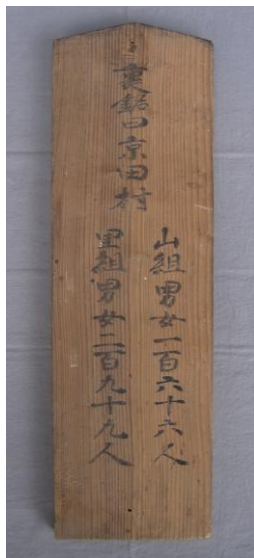 裏館口京田村
山組男女一百六十六人
里組男女二百九十九人